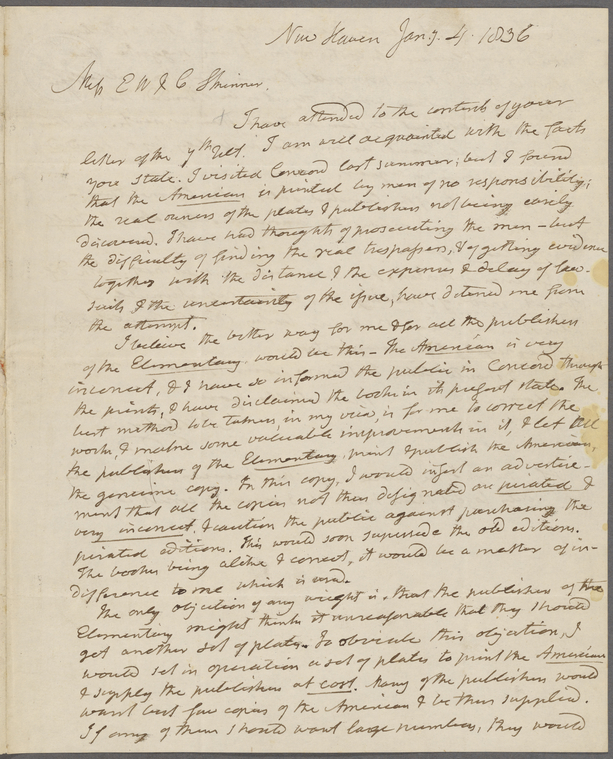 New Haven Jany. 4. 1836
Mess E W & C Skinner.
I have attended to the contents of your
letter of the 7th Ult. I am well acquainted with the facts
you state. I visited Concord last summer; but I found
that the American is printed by men of no responsibility;
the real owners of the plates & publishers not being easily
discovered. I have had thoughts of prosecuting the men – but
the difficulty of finding the real trespassers, & of getting evidence
together with the distance & the expenses & delay of law-
suits & the uncertainty of the issue, have deterred me from
the attempt.
I believe the better way for me & for all the publishers
of the Elementary would be this – the American is very
incorrect, & I have so informed the public in Concord through
the prints, & have disclaimed the book in its present state. The
best method to be taken, in my view, is for me to correct the
work, & make some valuable improvements in it, & let all
the publishers of the Elementary print & publish the American,
the genuine copy. In this copy, I would insert an advertise-
ment that all the copies not thus designated are pirated &
very incorrect, & caution the public against purchasing the
pirated editions. This would soon supersede the old editions.
The books being alike & correct, it would be a matter of in-
difference to me which is used.
The only objection of any weight is, that the publishers of the
Elementary might think it unreasonable that they should
get another set of plates. To obviate this objection, I
would set in operation a set of plates to print the American
& supply the publishers at cost. Many of the publishers would
want but few copies of the American & be thus supplied.
If any of them should want large numbers, they would